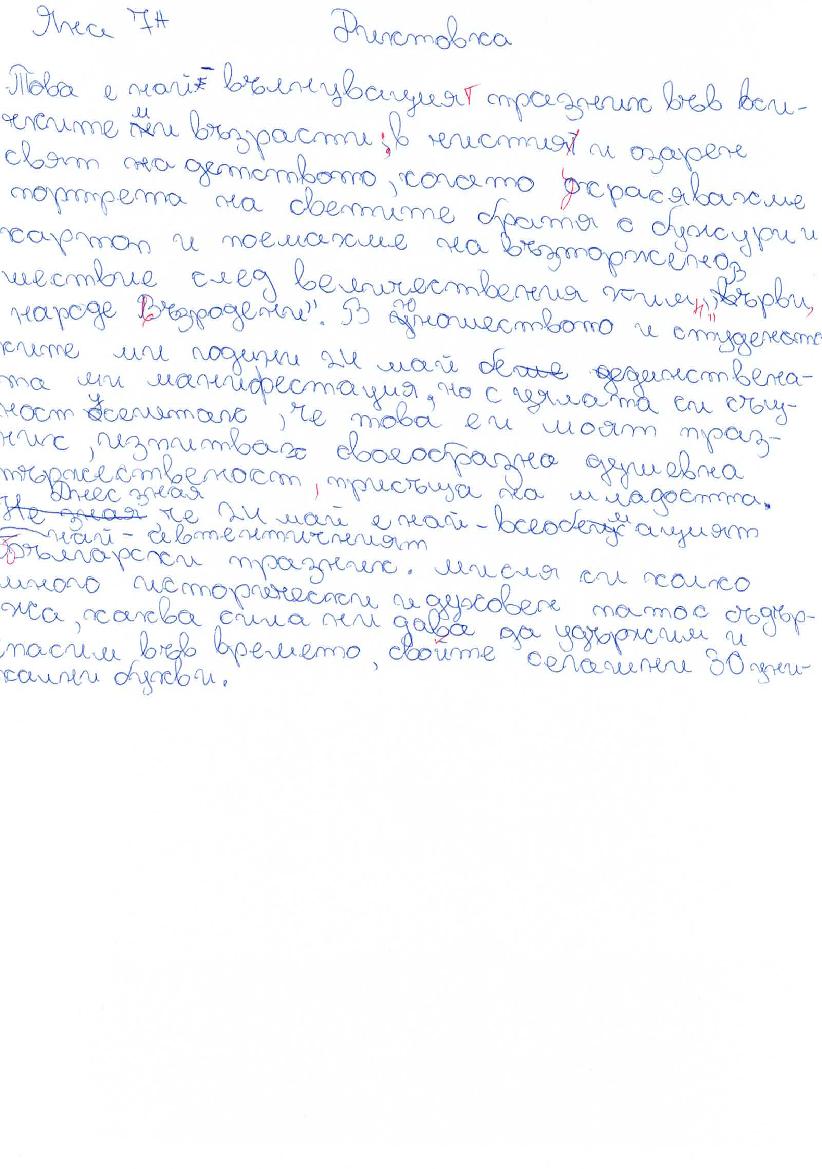 Яна 7н Диктовка
Това е най-вълнуващият празник във вси-
чките ми възрасти; в чистия и озарен
свят на детството, когато украсявахме
портрета на светите братя с божури и
картон и поемахме на възторжено
шествие след величествения химн „Върви,
народе възродени". В юношеството и студентс
ките ми години 24 май бе единствена-
та ми манифестация, но с цялата си същ-
ност усещах, че това е и моят праз-
ник, изпитвах своеобразна душевна
тържественост, присъща на младостта.
Днес зная
Не зная че 24 май е най-всеобемащият
най-автентичният
български празник. Мисля си колко
много исторически и духовен патос съдър-
жа, каква сила ни дава да удържим и
спасим във времето, своите сегашни 30 уни-
кални букви.